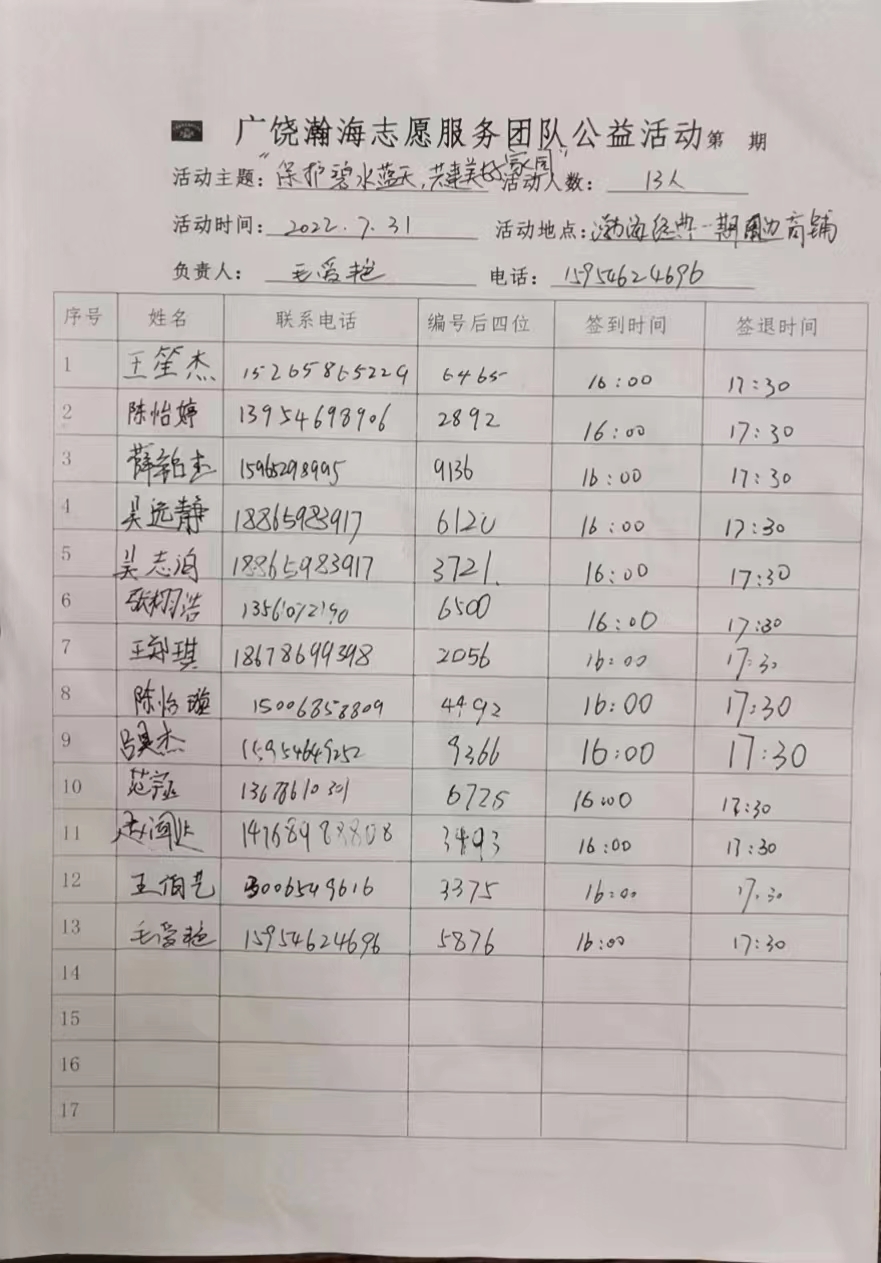 广饶瀚海志愿服务团队公益活动第 期
活动主题："保护碧水蓝天，共建美好家园" 活动人数： 13人
活动时间： 2022.7.31 活动地点：渤海经典一期周边商铺
负责人： 毛爱艳 电话：15954624696
序号 姓名 联系电话 编号后四位 签到时间 签退时间
1 王笙杰 15265865229 6465 16:00 17:30
2 陈怡婷 13954698906 2892 16:00 17:30
3 15965298995 9136 16:00 17:30
4 吴远静 18865983917 6120 16:00 17:30
5 吴志洵 18865983917 3721. 16:00 17:30
6 张栩浩 6500 16:00 17:30
7 王郑琪 18678699398 2056 16:00 17:30
8 陈怡璇 15006858809 4492 16:00 17:30
9 吕昊杰 15954649252 9366 16:00 17:30
10 6725 16:00 17:30
11 14768988808 3493 16:00 17:30
12 3375 16:00 17:30
13 毛爱艳 15954624696 5876 16:00 17:30
14
15
16
17